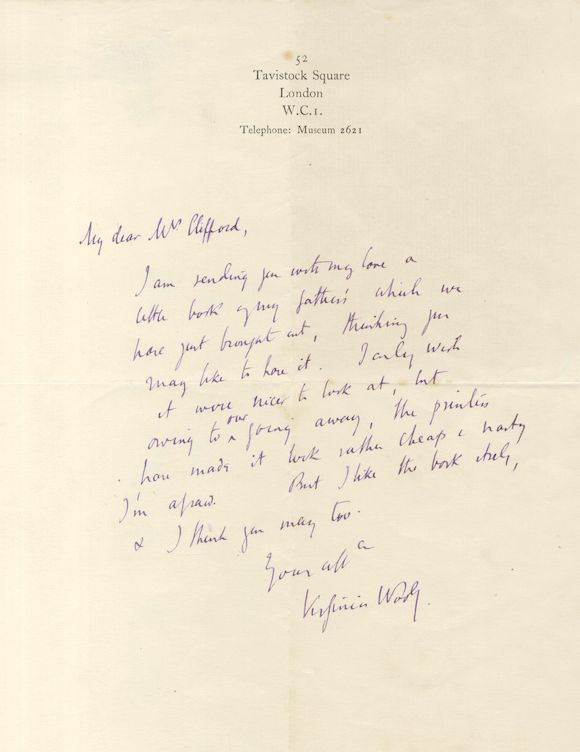 52
Tavistock Square
London
W.C.1.
Telephone: Museum 2621
My dear Mrs Clifford,
I am sending you with my love a
little book of my father's which we
have just brought out, thinking you
may like to have it. I only wish
it were nicer to look at, but
owing to our going away, the printers
have made it look rather cheap & nasty
I'm afraid. But I like the book itself,
& I think you may too.
Your aff
Virginia Woolf.